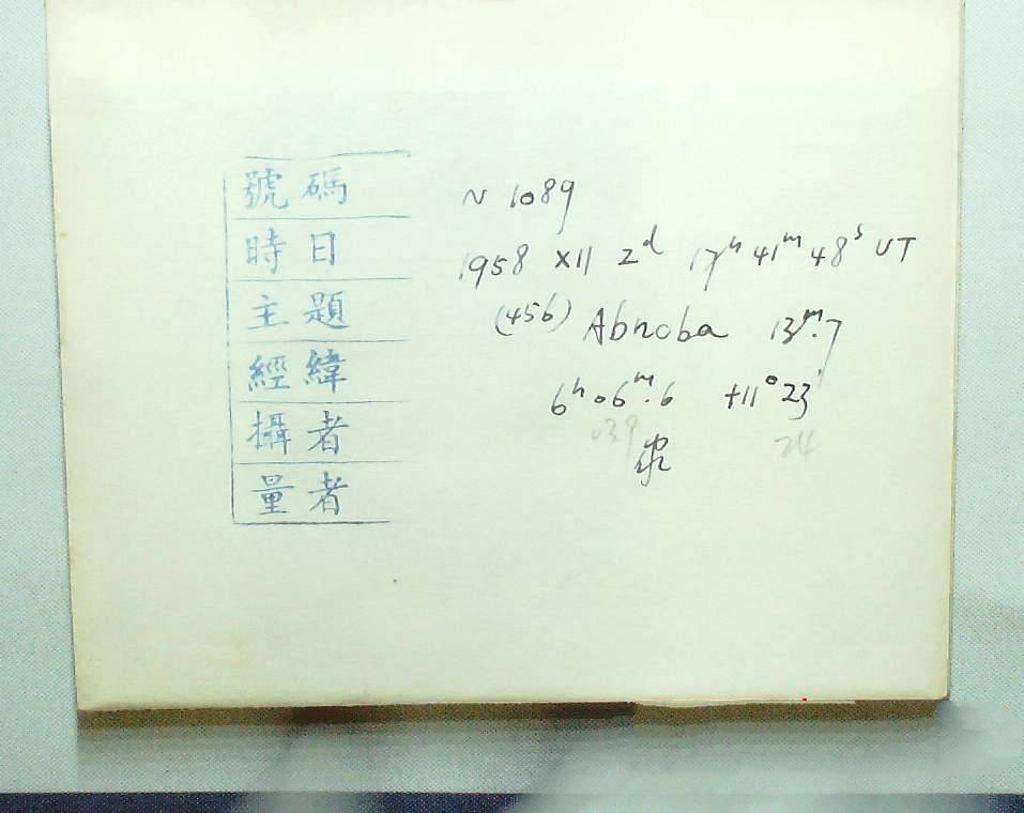 號碼 N 1089
時日 1958 XII 2ᵈ 17ʰ 41ᵐ 48ˢ UT
主題 (456) Abnoba 13ᵐ.7
經緯 6ʰ 06ᵐ.6 +11° 23'
039 24
攝者
量者